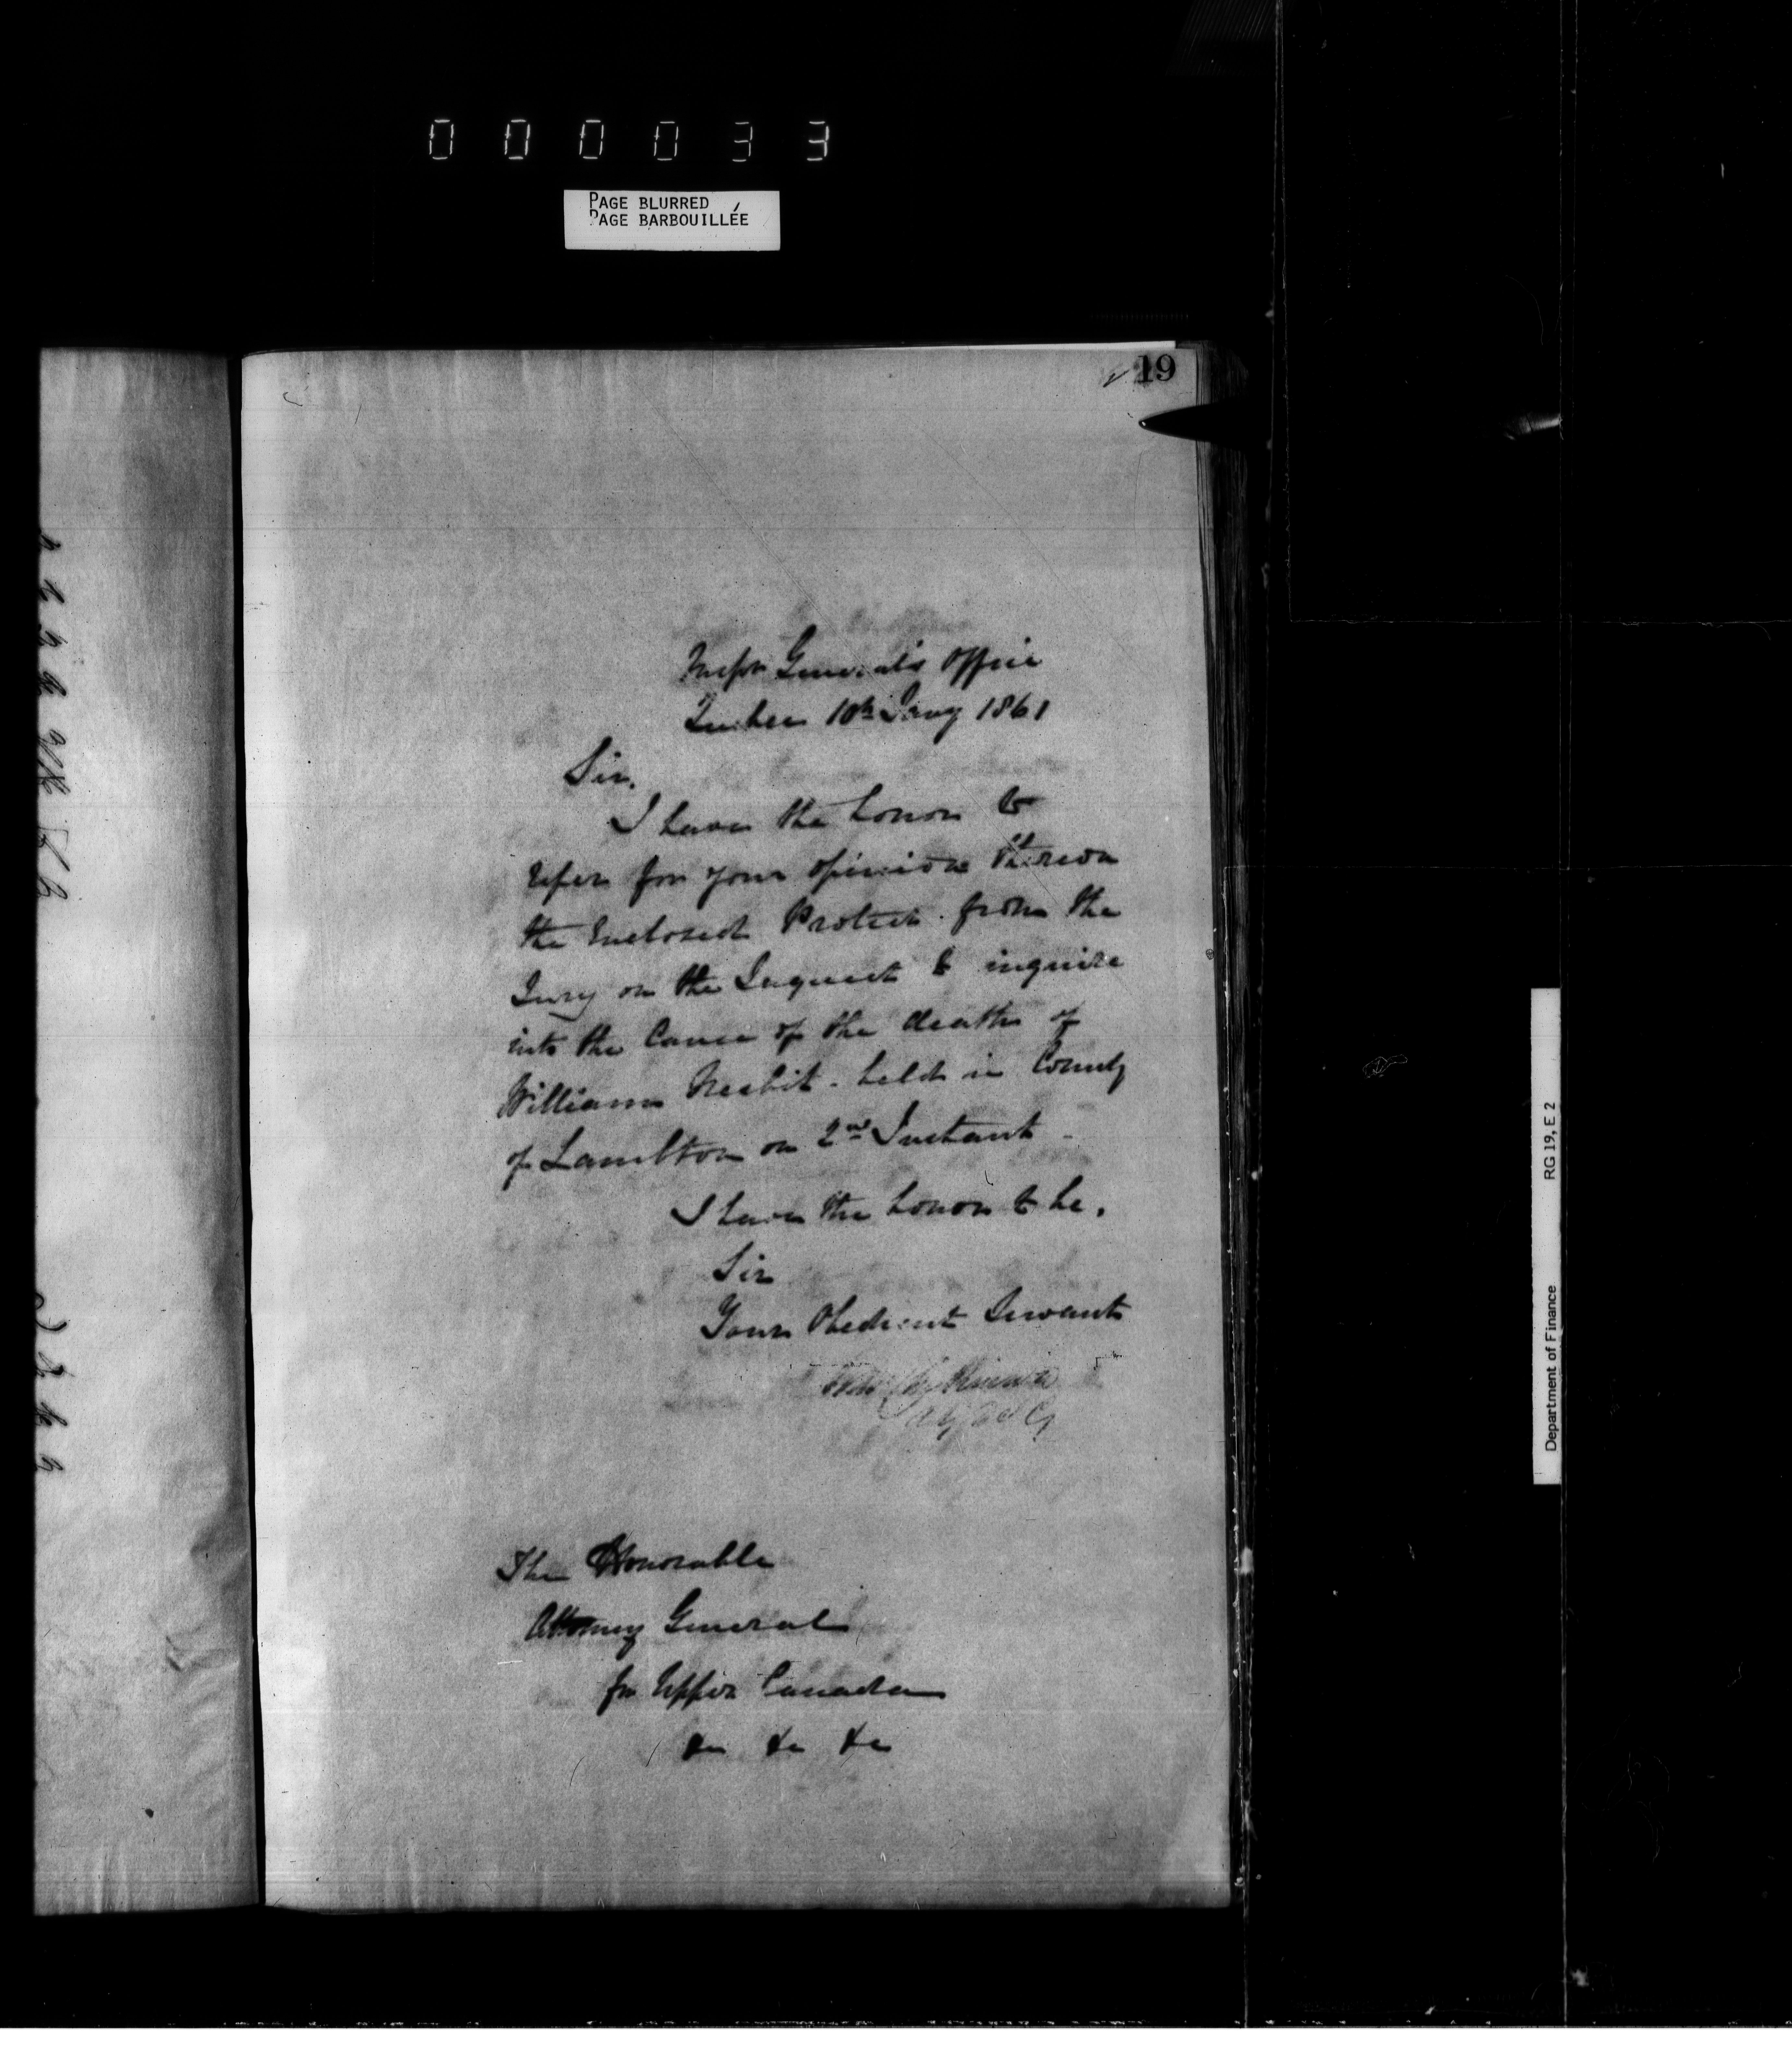 000033
PAGE BLURRED
PAGE BARBOUILLÉE
19
Inspr General's Office
Quebec 10th Jany 1861
Sir.
I have the honor to
refer for your opinion thereon
the Enclosed Protest from the
Jury on the Inquest to inquire
into the Cause of the death of
William Nesbit - held in County
of Lambton on 2nd Instant -
I have the honor to be.
Sir
Your Obedient Servant
The Honorable
Attorney General
for Upper Canada
&c &c &c
RG 19, E 2
Department of Finance